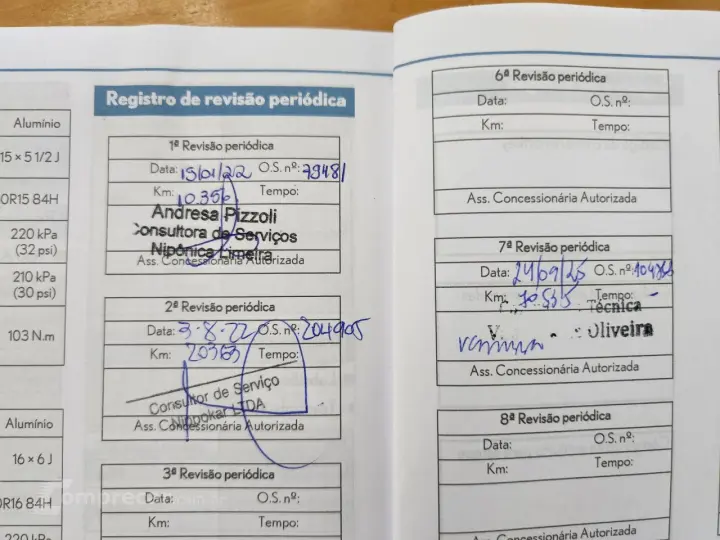 Alumínio
15 × 5 1/2 J
0R15 84H
220 kPa
(32 psi)
210 kPa
(30 psi)
103 N.m
Alumínio
16 × 6 J
0R16 84H
220 kPa
Registro de revisão periódica
1ª Revisão periódica
Data: 15/01/22 O.S. nº: 79481
Km: 10.356 Tempo:
Andresa Pizzoli
Consultora de Serviços
Nipônica Limeira
Ass. Concessionária Autorizada
2ª Revisão periódica
Data: 3-8-22 O.S. nº: 204905
Km: 20363 Tempo:
Consultor de Serviço
Nippokar LTDA
Ass. Concessionária Autorizada
3ª Revisão periódica
Data: O.S. nº:
Km: Tempo:
6ª Revisão periódica
Data: O.S. nº:
Km: Tempo:
Ass. Concessionária Autorizada
7ª Revisão periódica
Data: 24/09/25 O.S. nº:
Km: 70535 Tempo: -
Técnica
Oliveira
Ass. Concessionária Autorizada
8ª Revisão periódica
Data: O.S. nº:
Km: Tempo:
Ass. Concessionária Autorizada